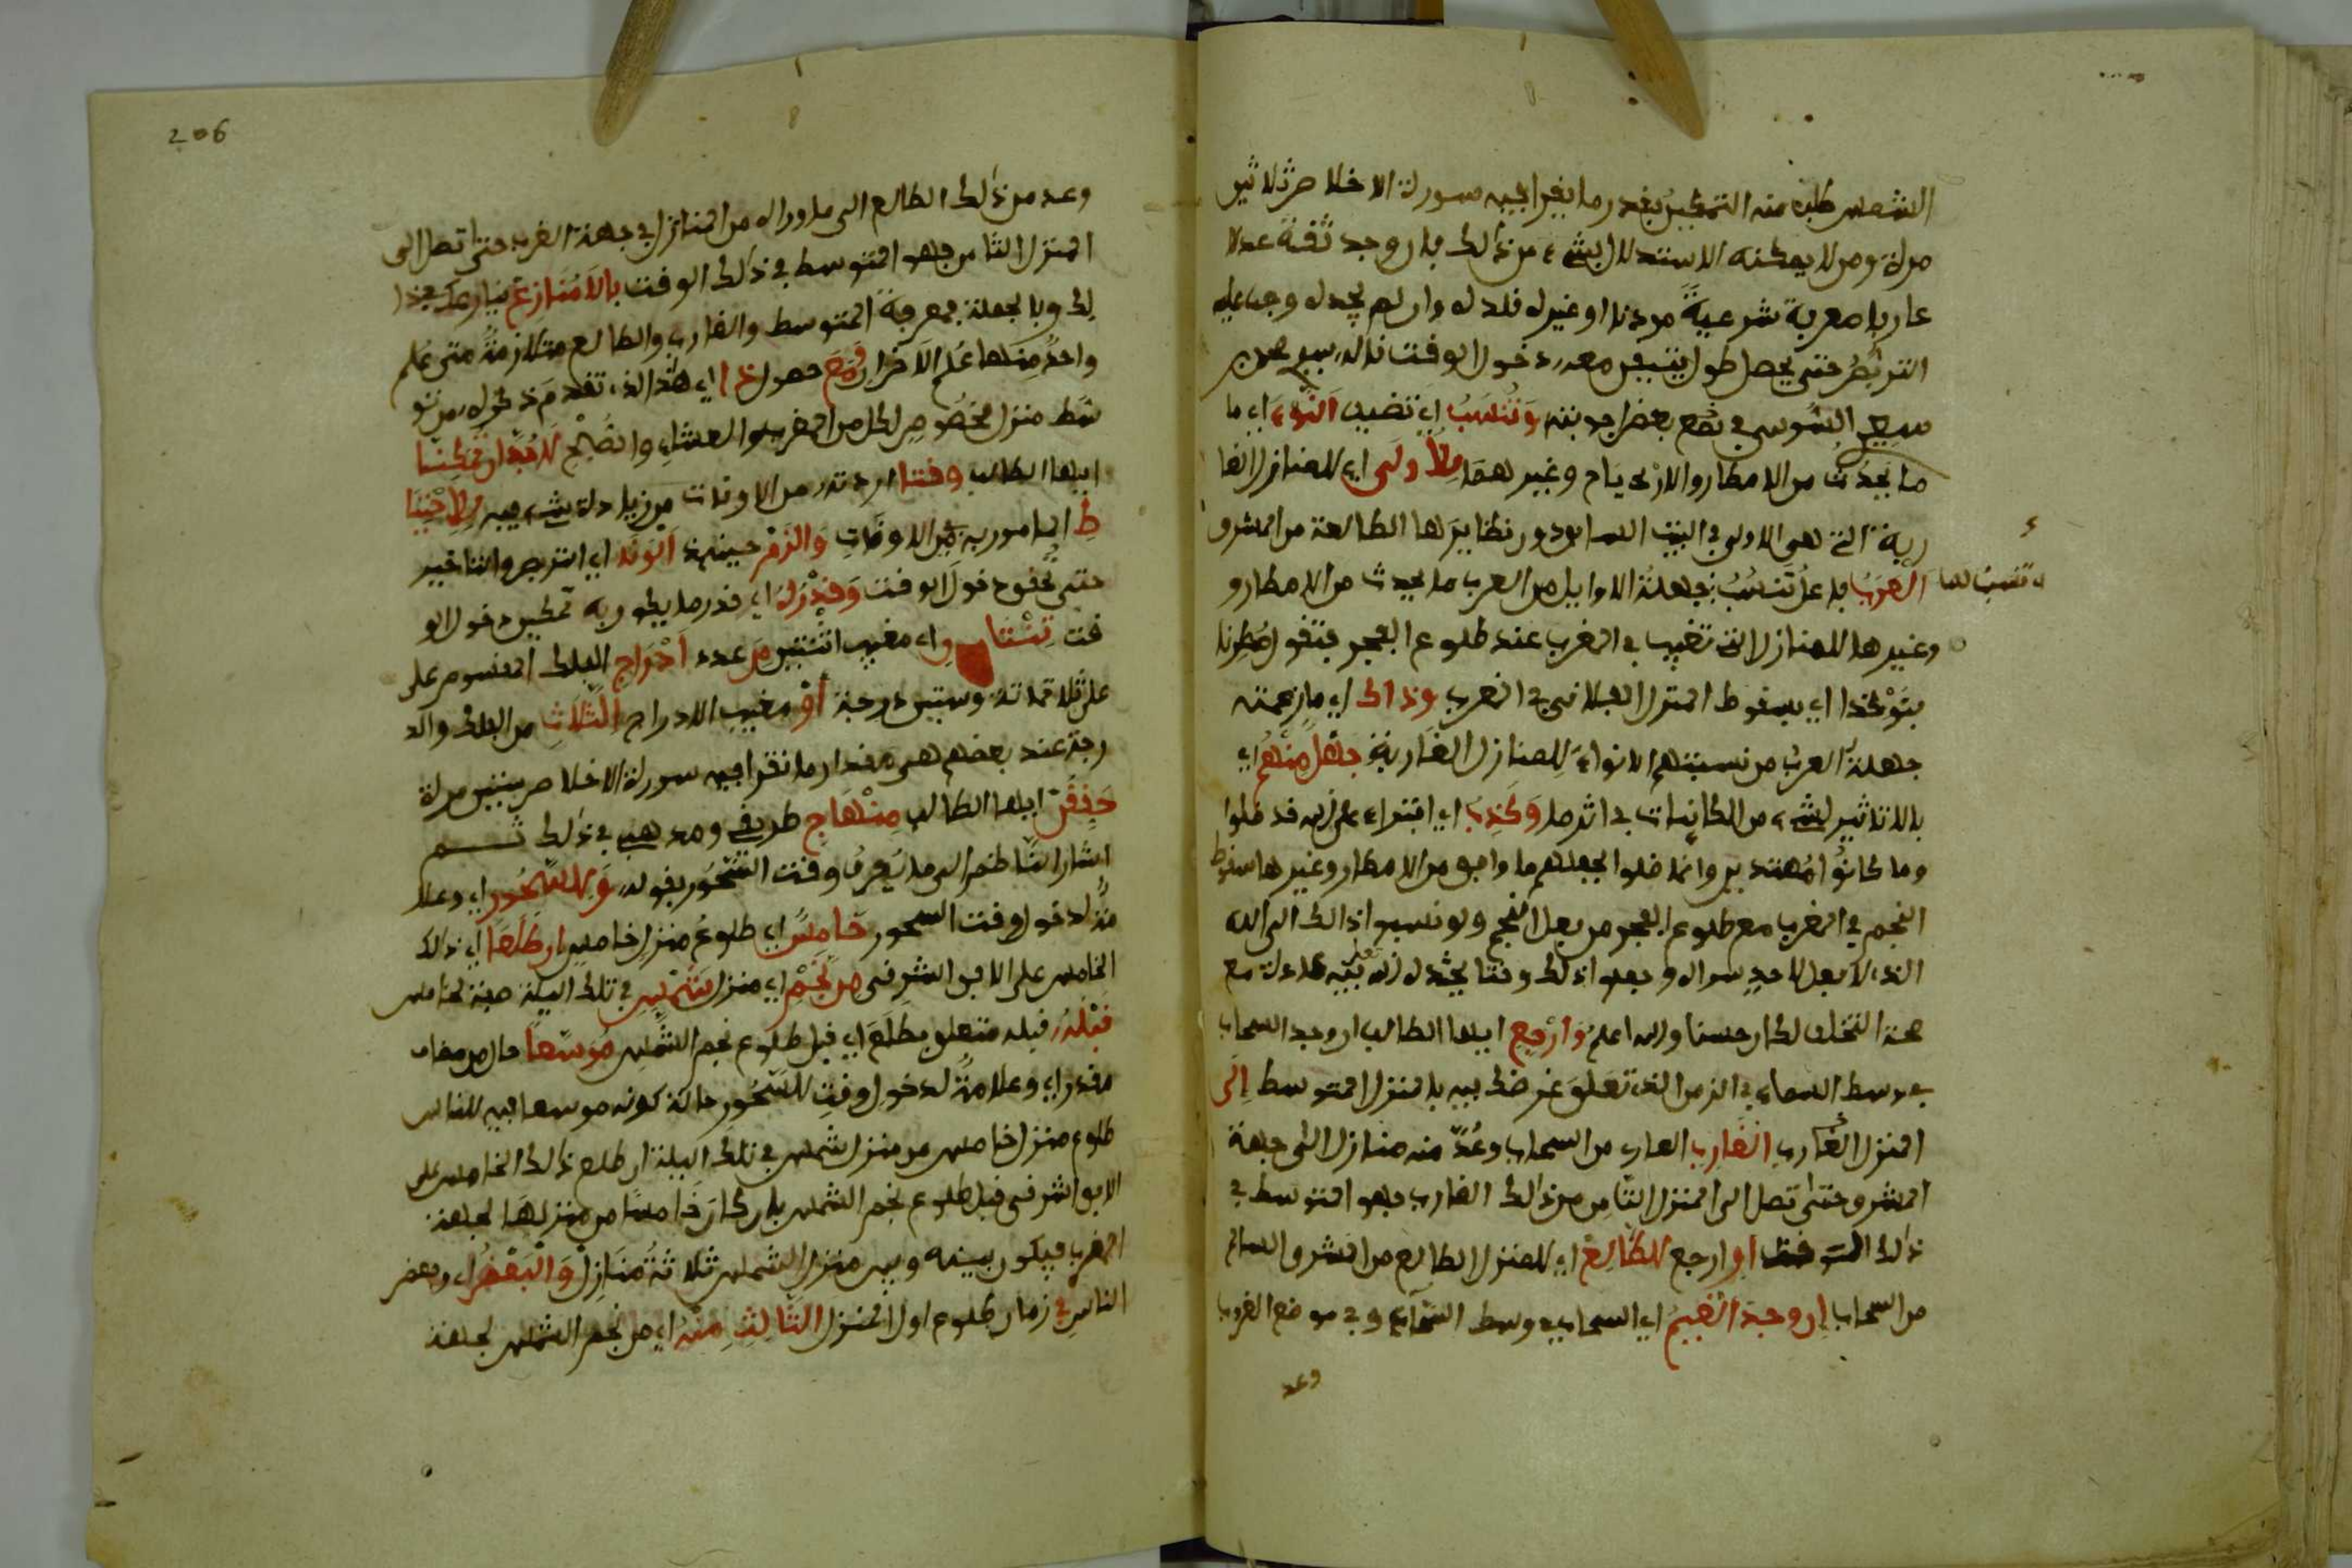 الشمس طلبه منه التمكين بقدر ما يقرأ فيه سورة الاخلاص ثلاثين
مرة ومن لا يمكنه الاستدلال بشيء من ذلك فان وجد ثقة عدلا
عارفا معرفة شرعية مؤذنا او غيره قلده وان لم يجده وجب عليه
التربص حتى يحصل طول يتيقن معه دخول الوقت قاله
سعيد السوسي في بعض اجوبته وَتَنْسُبُ اي تضيف النَّوْءَ اي ما
ما يحدث من الامطار والارياح وغيرهما لِلأُولَى اي للمنازل الغا
ربة التي هي الاولى في البيت السابق دون نظايرها الطالعة من المشرق
العَرَبُ فاعل تنسب فجهلة الاوايل من العرب ما يحدث من الامطار و
وغيرها للمنازل التي تغيب في المغرب عند طلوع الفجر فتقول مُطِرنا
بنَوْءِ كذا اي بسقوط المنزل الفلاني في المغرب وذاك اي ما زعمته
جهلة العرب من نسبتهم الانواء للمنازل الغاربة جَهْلٌ مِنْهُم اي
بالتاثير لشيء من الكاينات في اثر ما وَكَذِبٌ اي افتراء على الله قد ضلوا
وما كانوا مهتدين وانما ضلوا لجعلهم ما وافق من الامطار وغيرها سقوط
النجم في المغرب مع طلوع الفجر من فعل النجم ولو نسبوا ذالك الى الله
الذي لا فعل لاحد سواه وجعلوا ذلك وقتا يحدث الله فيه عادة مع
صحة التخلف لكان حسنا والله اعلم وَارْجِع ايها الطالب ان وجد السحاب
في وسط السماء في الزمن الذي تعلق غرضك فيه بالمنزل المتوسط اِلَى
المنزل الغارب الغَارِب العاري من السحاب وعُدَّ منه منازل الى جهة
المشرق حتى تصل الى المنزل الثامن من ذالك الغارب فهو المتوسط في
ذالك الوقت او ارجع للطّالِعْ اي للمنزل الطالع من المشرق السالم
من السحاب اِن وجدَ الغَيمُ اي السحاب في وسط السماء وفي موضع الغروب
وعد
206
وعد من ذالك الطالع الى ما وراه من المنازل في جهة الغرب حتى تصل الى
المنزل الثامن فهو المتوسط في ذلك الوقت بِلاَ مُنَازِعْ
لك وبالجملة فمعرفة المتوسط والغارب والطالع متلازمة متى علم
واحدٌ منها عُلم الآخران وَمَعَ حصول ذَا اي هذا الذي تقدم ذكره من تو
سط منزل مخصوص لكل من المغرب والعشاء والصبح لا بُدَّ ان تُمَكِّنَا
ايها الطالب وقتا اردته من الاوقات من زيادة شيء فيه لِلاحْتِيَا
ط المامور به في الاوقات وَالْزَمْ حينئذ التَّوْنَة اي التربص والتاخير
حتى تحقق دخول الوقت وَقَدْرُهُ اي قدر ما يكون به تمكين دخول الو
قت ثِنْتَانِ اي مغيب اثنتين مِن عدد اَدْرَاجِ الفلك المقسوم على
على ثلاثمائة وستين درجة أَوْ مغيب الادراج الثَّلاَثِ من الفلك والد
رجة عند بعضهم هي مقدار ما تقرا فيه سورة الاخلاص ستين مرة
حَقِّقَن ايها الطالب مِنْهَاج طريقي ومذهبي في ذلك ثم
اشار الناظم الى ما يعرف به وقت السُّحُور بقوله وَلِلسُّحُور اي وعلا
مة لدخول وقت السحور خَامِسٌ اي طلوع منزل خامس ان طَلَعَا اي ذالك
الخامس على الافق الشرقي مِن نَّجْمِ اي منزل شَمْسٍ في تلك الليلة صفة لخامس
قَبْلَهُ قبله متعلق بطلع اي قبل طلوع نجم الشمس مُوَسّعاً حال من مضاف
مقدر اي وعلامة لدخول وقت للسحور حالة كونه موسعا فيه للناس
طلوع منزل خامس من منزل شمس في تلك الليلة ان طلع ذالك الخامس على
الافق الشرقي قبل طلوع نجم الشمس بان كان خامسا من منزلها لجهة
المغرب فيكون بينه وبين منزل الشمس ثلاثة منازل وَالْبَعْضُ اي وبعض
الناس في زمان طلوع اول المنزل الثَّالِثِ مِنْهُ اي من نجم الشمس لجهة